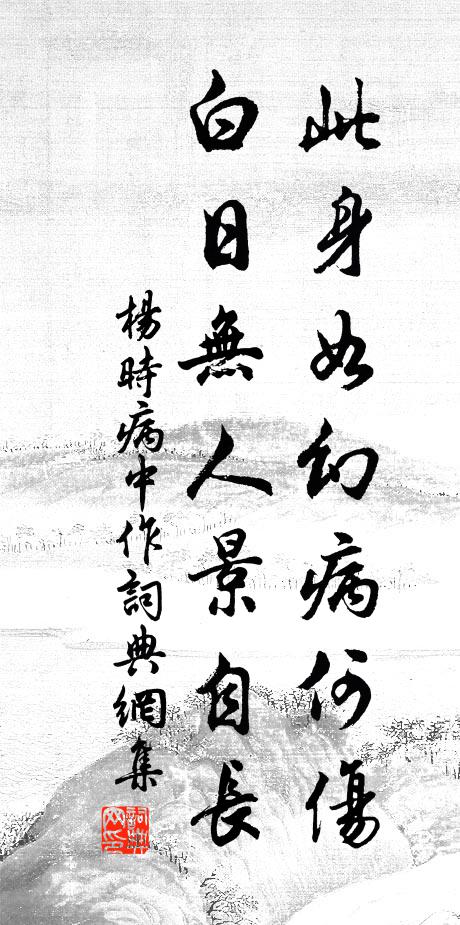 此身如幻病何傷
白日無人景自長
楊時病中作詞典網集
詞典網印